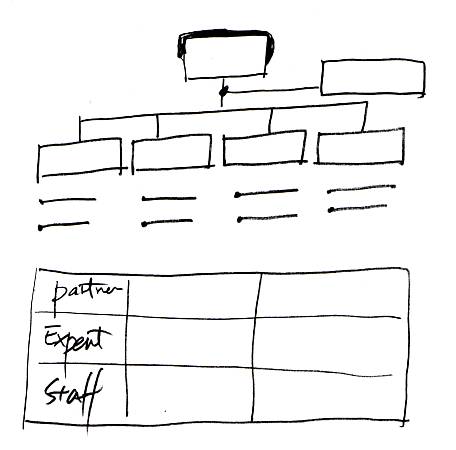 partner
Expert
Staff